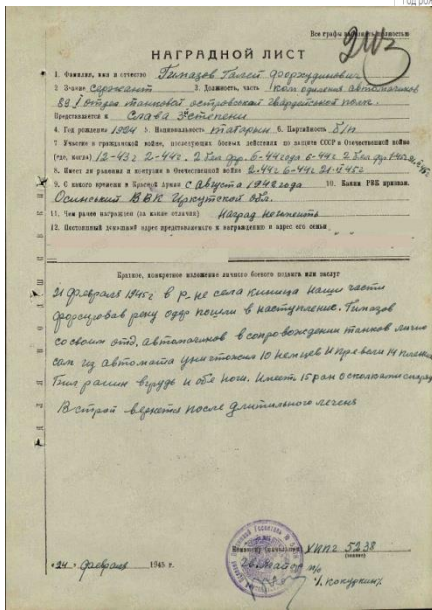 Год рож
Все графы заполнять полностью
НАГРАДНОЙ ЛИСТ
1. Фамилия, имя и отчество Гимазов
2 Звание сержант 3. Должность, часть ком. отделения автоматчиков
89 отдел. танковый гвардейский полк.
Представляется к Слава 3 степени
4. Год рождения 1924 5. Национальность татарин 6. Партийность б/п
7. Участие в гражданской войне, последующих боевых действиях по защите СССР и Отечественной войне
(где, когда)
8. Имеет ли ранения и контузии в Отечественной войне 2-44г 6-44г
9. С какого времени в Красной Армии с Августа 1942 года 10. Каким РВК призван
Осинский РВК Иркутской обл.
11. Чем ранее награжден (за какие отличия) Наград не имеет
12. Постоянный домашний адрес представляемого к награждению и адрес его семьи
Краткое, конкретное изложение личного боевого подвига или заслуг
21 февраля 1945г в р-не села наши части
форсировав реку одер пошли в наступление. Гимазов
со своим отд. автоматчиков в сопровождении танков лично
сам из автомата уничтожил 10 немцев и 14
Был ранен в грудь и обе ноги. Имеет 15 ран осколками
В строй вернется после длительного
Командир (начальник) ХППГ 5238
"24" февраля 1945 г.